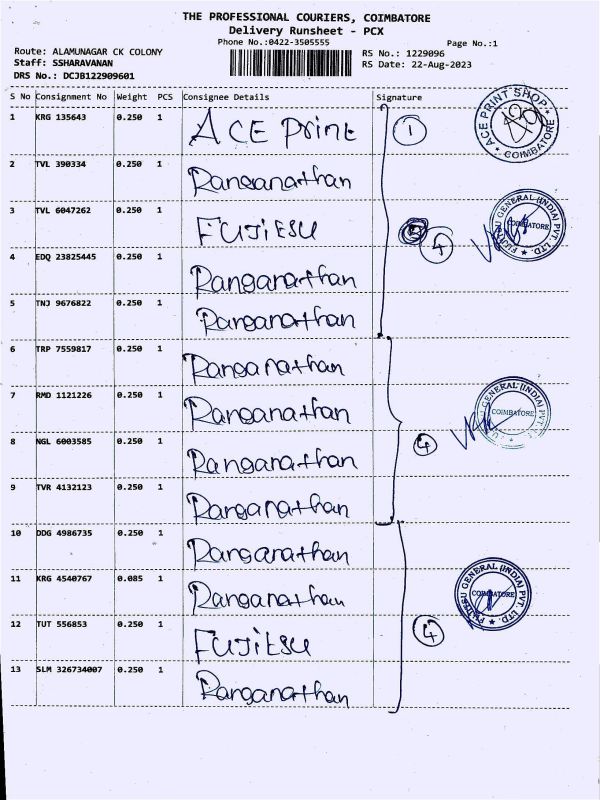 THE PROFESSIONAL COURIERS, COIMBATORE
Delivery Runsheet - PCX
Phone No.:0422-3505555
Page No.:1
Route: ALAMUNAGAR CK COLONY
RS No.: 1229096
Staff: SSHARAVANAN
RS Date: 22-Aug-2023
DRS No.: DCJB122909601
S No Consignment No Weight PCS Consignee Details Signature
1 KRG 135643 0.250 1 ACE Print 1
ACE PRINT SHOP
COIMBATORE
2 TVL 390334 0.250 1 Ranganathan
3 TVL 6047262 0.250 1 FUJITSU 4
FUJITSU GENERAL (INDIA) PVT. LTD.
COIMBATORE
4 EDQ 23825445 0.250 1 Ranganathan
5 TNJ 9676822 0.250 1 Ranganathan
6 TRP 7559817 0.250 1 Ranganathan
7 RMD 1121226 0.250 1 Ranganathan
GENERAL (INDIA) PVT
COIMBATORE
8 NGL 6003585 0.250 1 Ranganathan 4
9 TVR 4132123 0.250 1 Ranganathan
10 DDG 4986735 0.250 1 Ranganathan
11 KRG 4540767 0.085 1 Ranganathan
FUJITSU GENERAL (INDIA) PVT. LTD.
COIMBATORE
12 TUT 556853 0.250 1 FUJITSU 4
13 SLM 326734007 0.250 1 Ranganathan